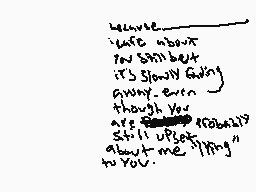 because
i care about
you still but
it's slowly fading
away. even
though you
are probably
still upset
about me "lying"
to you.